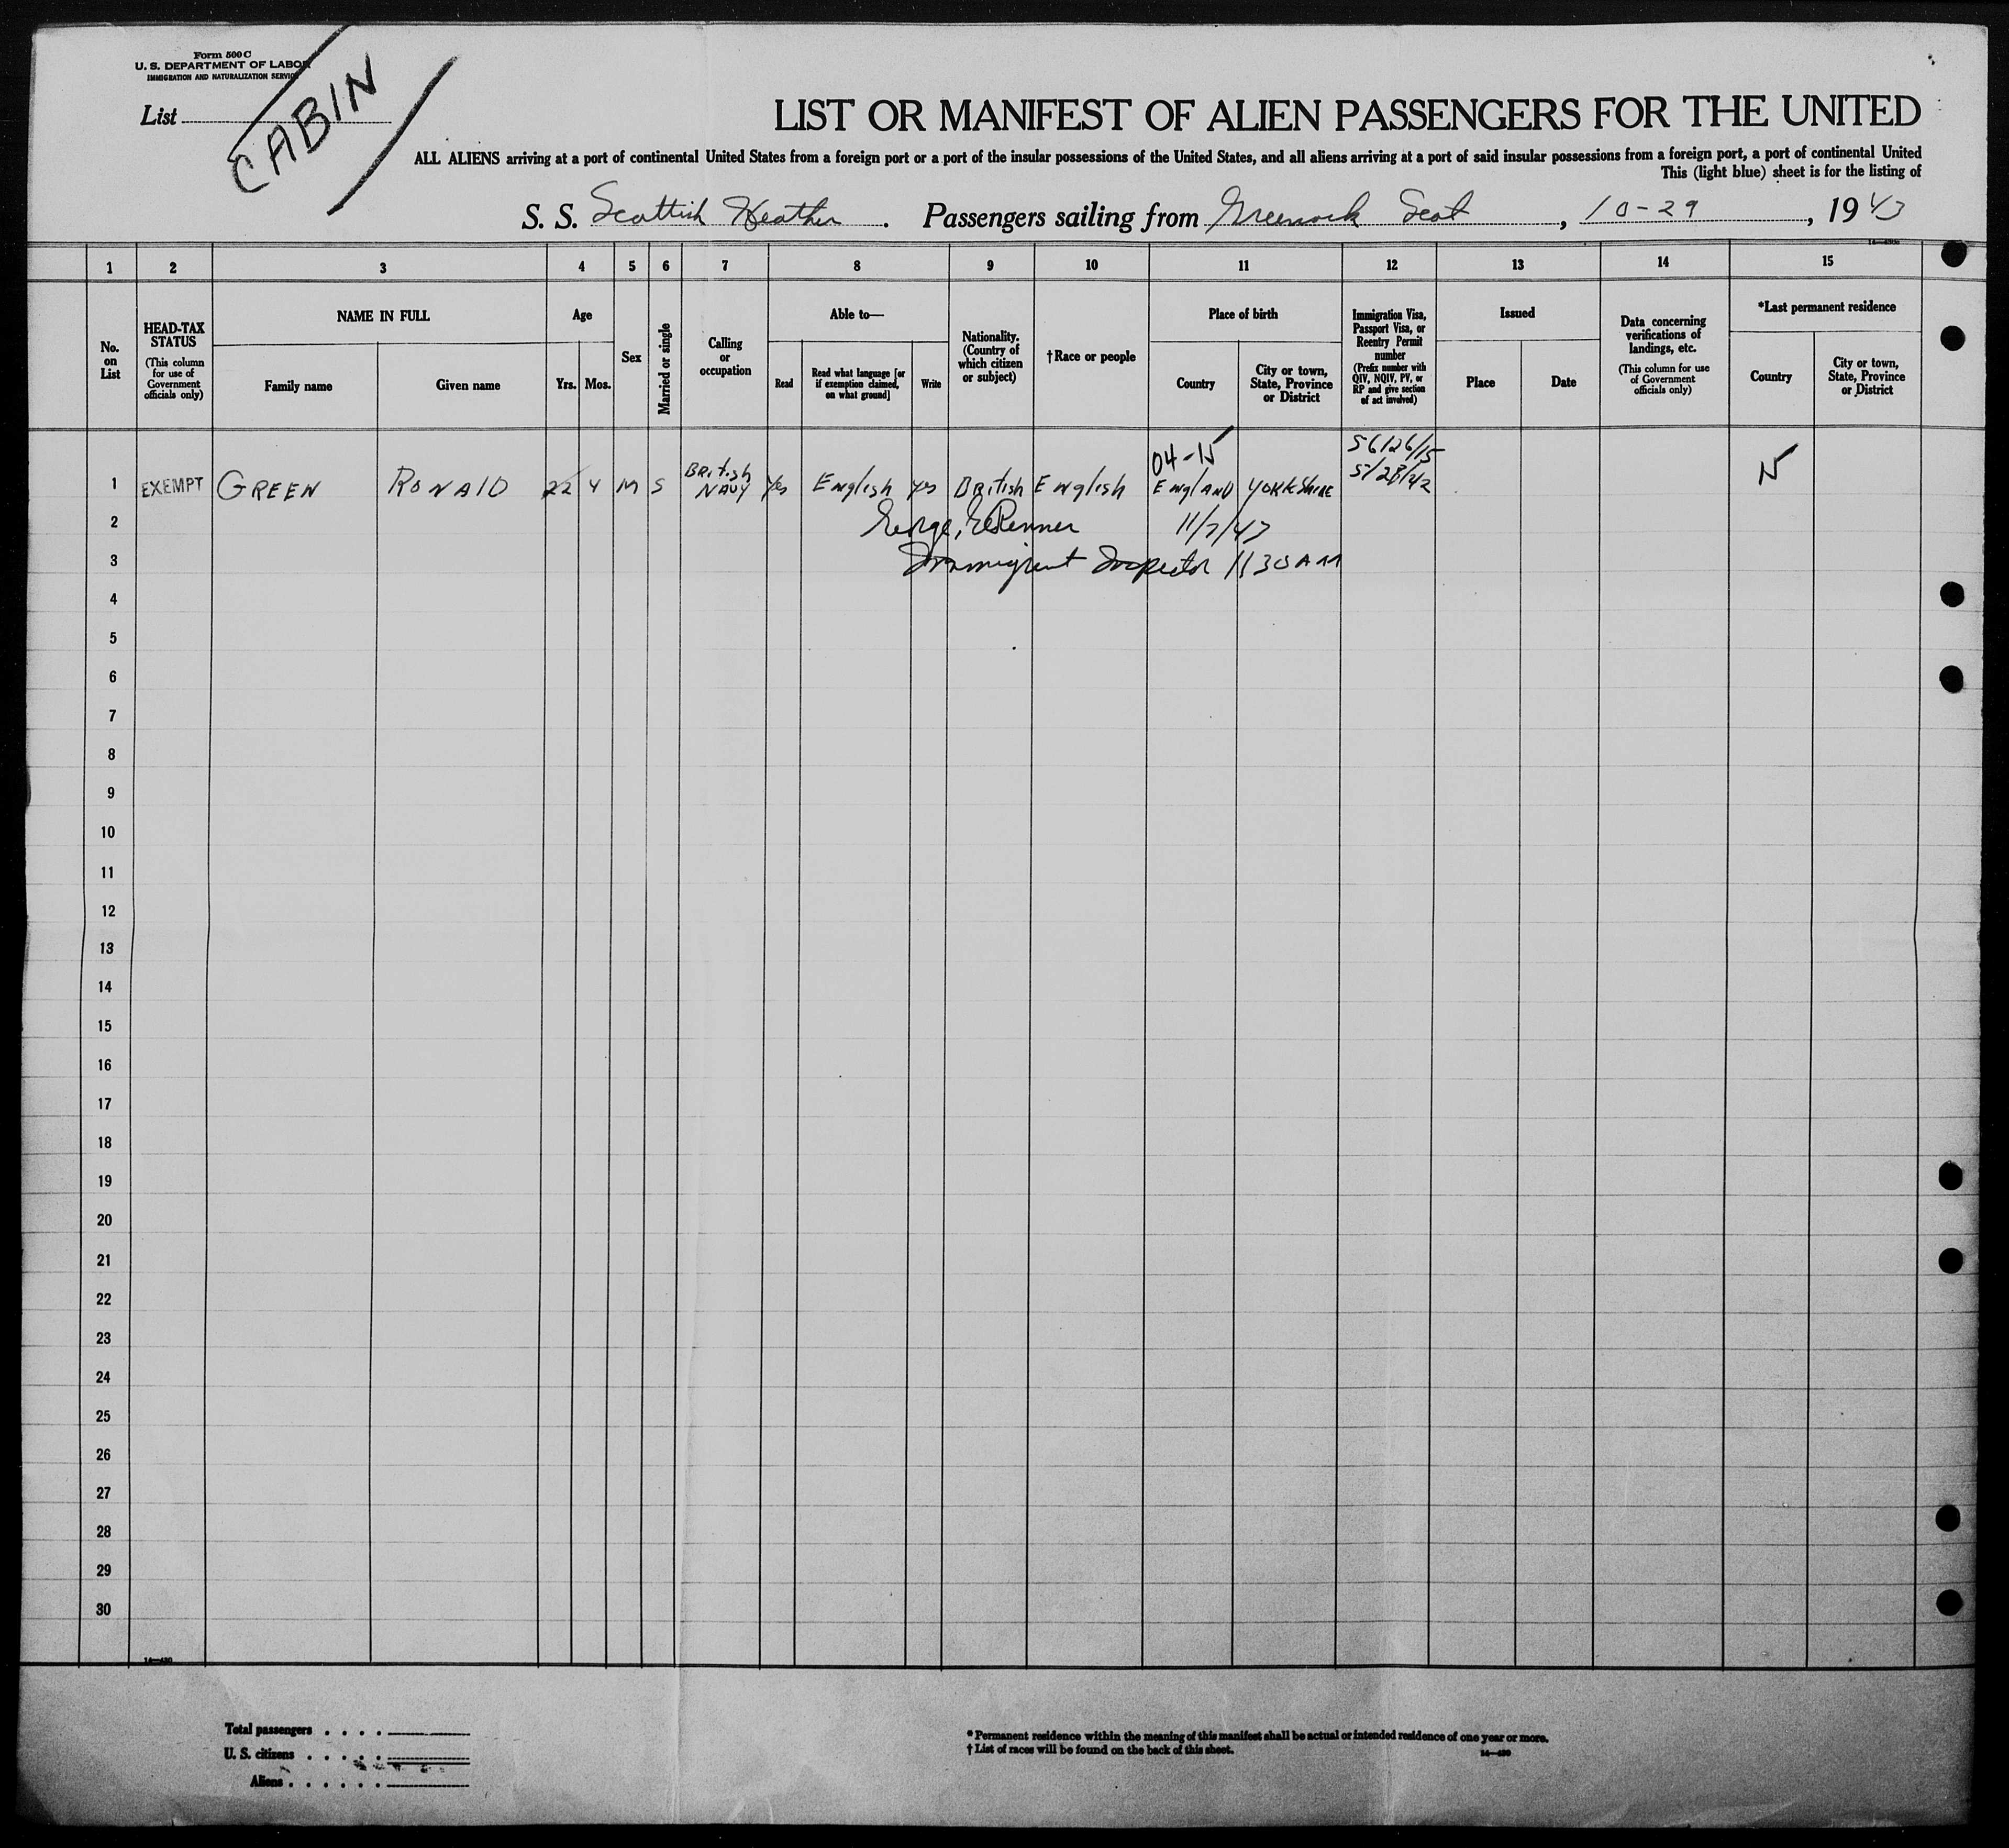 Form 500 C
U. S. DEPARTMENT OF LABOR
IMMIGRATION AND NATURALIZATION SERVICE
List
CABIN
LIST OR MANIFEST OF ALIEN PASSENGERS FOR THE UNITED
ALL ALIENS arriving at a port of continental United States from a foreign port or a port of the insular possessions of the United States, and all aliens arriving at a port of said insular possessions from a foreign port, a port of continental United
This (light blue) sheet is for the listing of
S. S. Scottish Heather. Passengers sailing from Greenock Scot, 10-29, 1943
1 2 3 4 5 6 7 8 9 10 11 12 13 14 15
No. on List
HEAD-TAX STATUS
(This column for use of Government officials only)
NAME IN FULL
Family name
Given name
Age
Yrs. Mos.
Sex
Married or single
Calling or occupation
Able to—
Read
Read what language [or if exemption claimed, on what ground]
Write
Nationality. (Country of which citizen or subject)
†Race or people
Place of birth
Country
City or town, State, Province or District
Immigration Visa, Passport Visa, or Reentry Permit number
(Prefix number with QIV, NQIV, PV, or RP and give section of act involved)
Issued
Place
Date
Data concerning verifications of landings, etc.
(This column for use of Government officials only)
*Last permanent residence
Country
City or town, State, Province or District
04-15
56126/15
5/28/42
1 EXEMPT GREEN RONALD 22 4 M S BRitish NAVY Yes English yes British English England YORKSHIRE
2 George, Renner 11/7/43
3 Immigrant Inspector 11 30 AM
4
5
6
7
8
9
10
11
12
13
14
15
16
17
18
19
20
21
22
23
24
25
26
27
28
29
30
Total passengers . . . .
U. S. citizens . . . . .
Aliens . . . . . .
* Permanent residence within the meaning of this manifest shall be actual or intended residence of one year or more.
† List of races will be found on the back of this sheet.